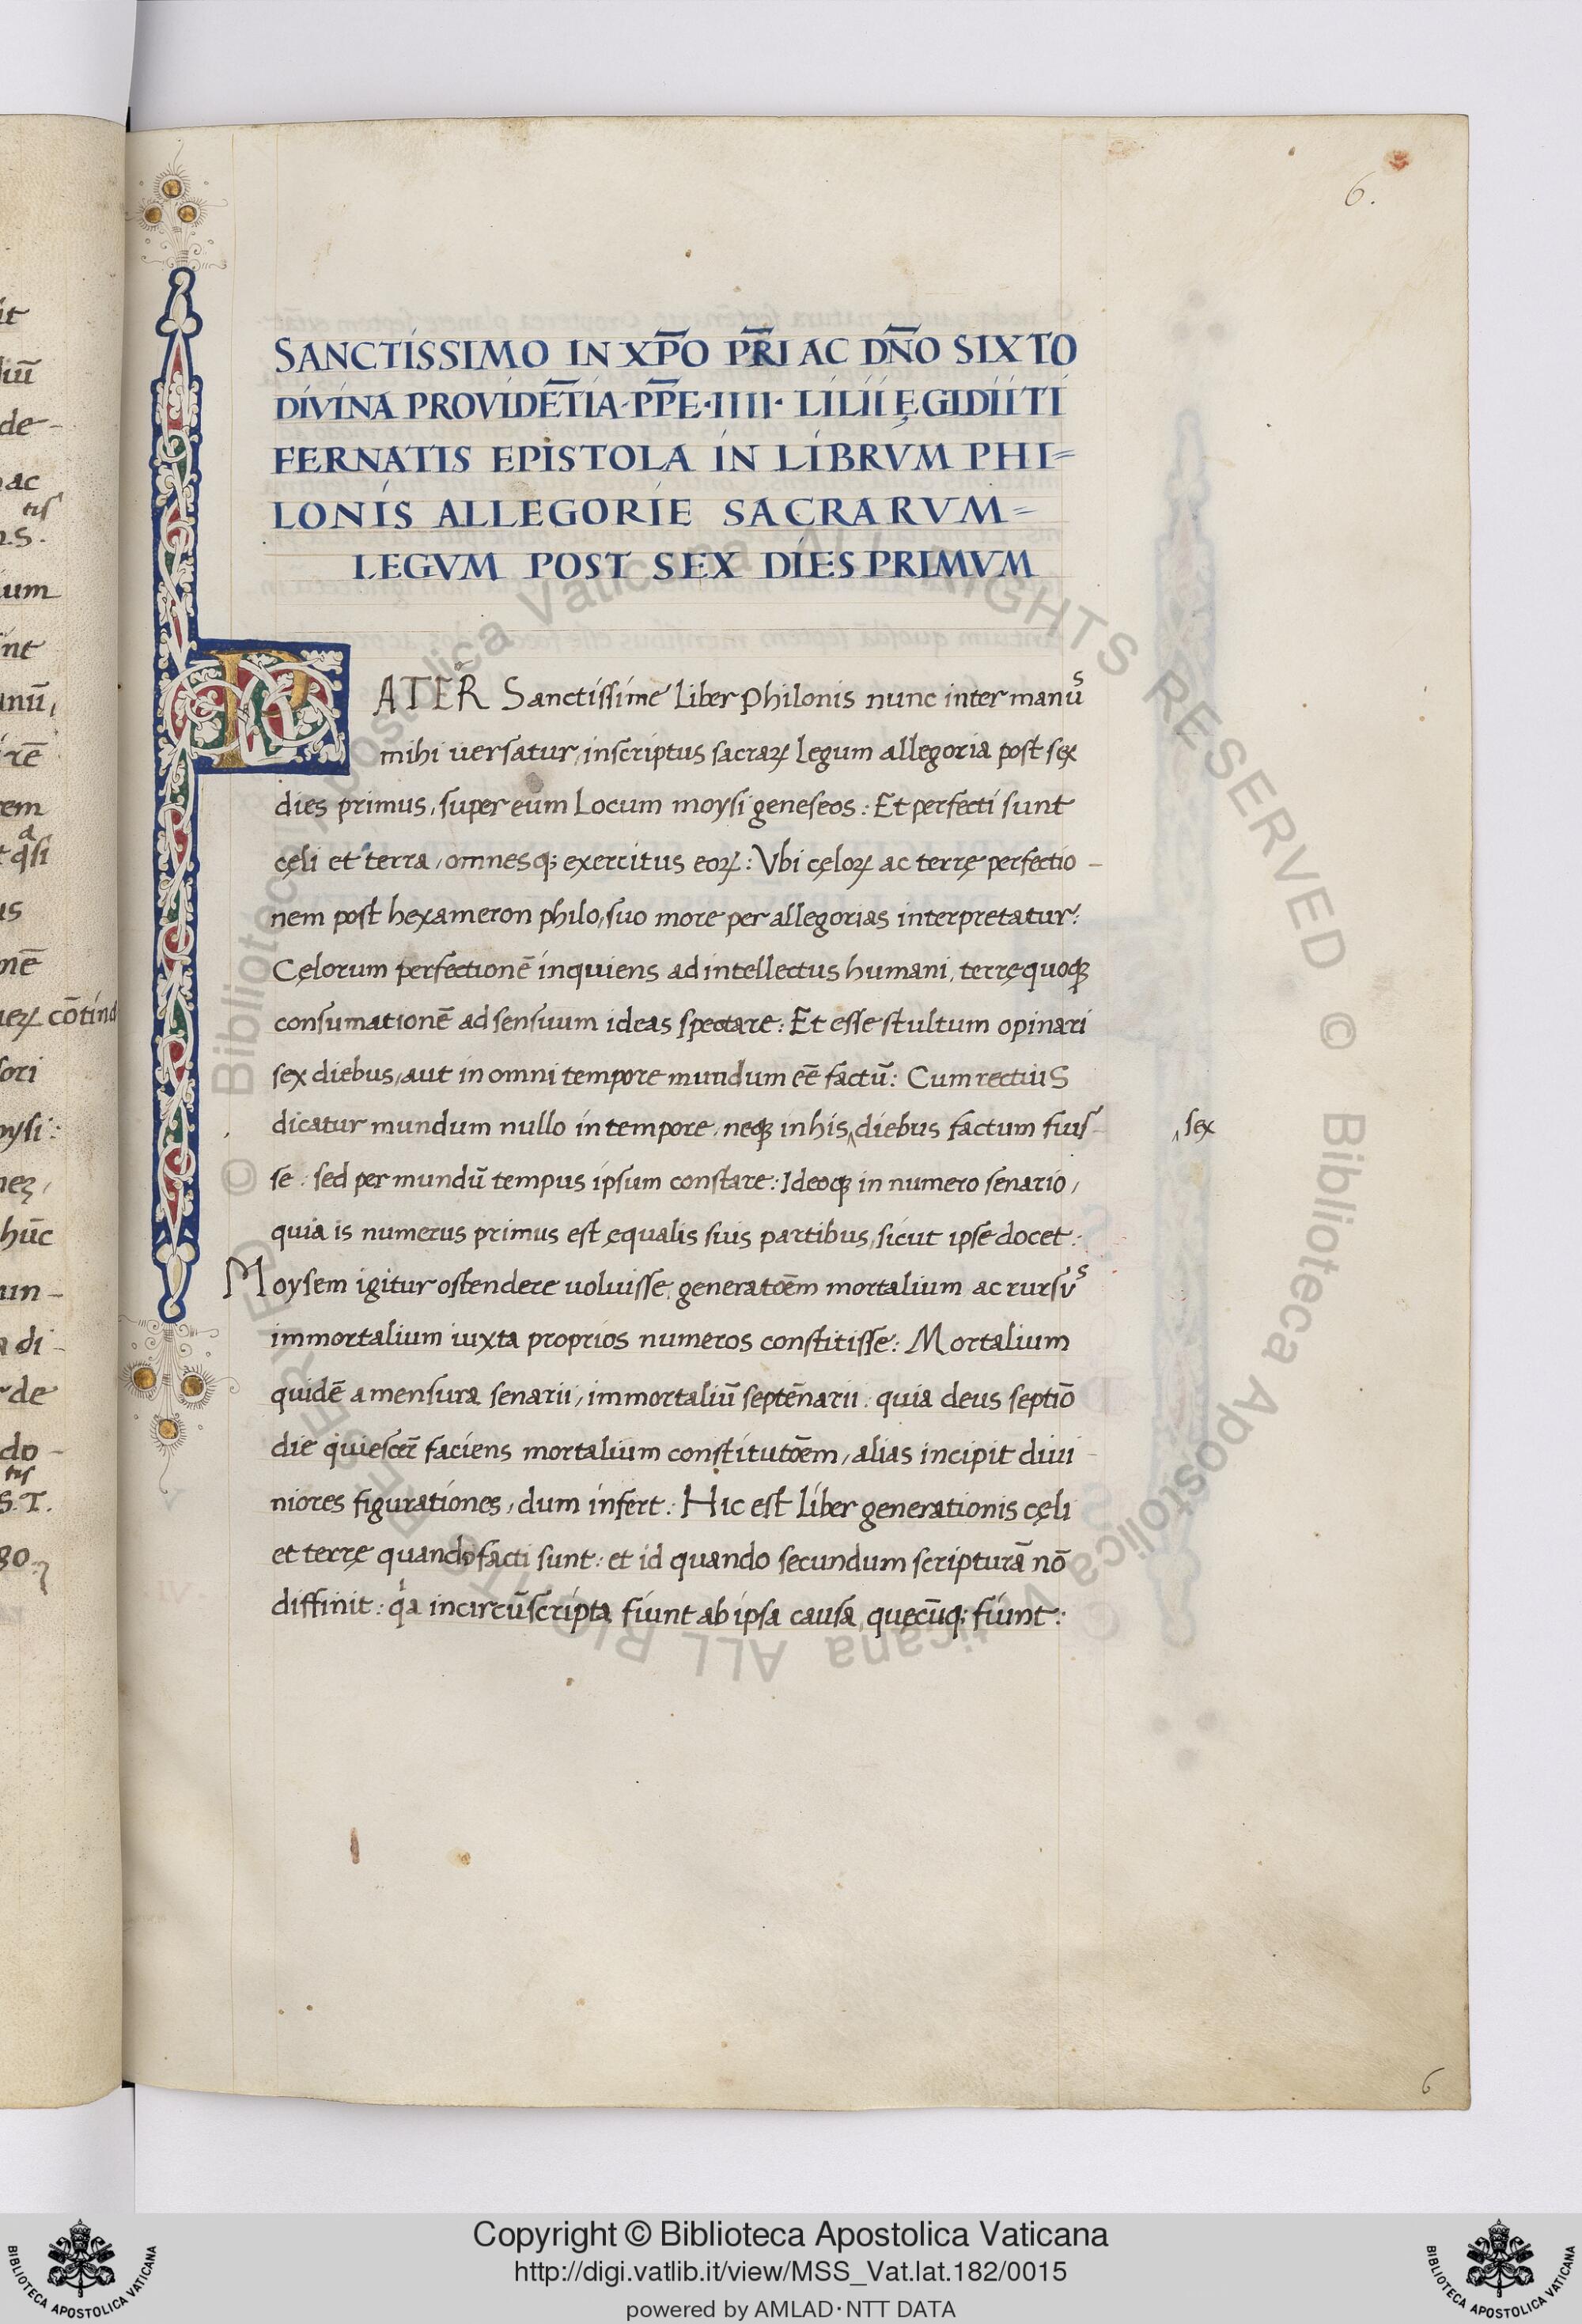 6.
SANCTISSIMO IN XP̅O PR̅I AC DN̅O SIXTO
DIVINA PROVIDE̅TIA·PP̅E·IIII· LILII ĘGIDII TI
FERNATIS EPISTOLA IN LIBRVM PHI=
LONIS ALLEGORIE SACRARVM=
LEGVM POST SEX DIES PRIMVM
PATER Sanctissime Liber Philonis nunc inter manuˢ
mihi uersatur, inscriptus sacraꝝ Legum allegoria post sex
dies primus, super eum Locum moysi geneseos: Et perfecti sunt
cęli et terra, omnesq; exercitus eoꝝ: Vbi cęloꝝ ac terrę perfectio-
nem post hexameron philo, suo more per allegorias interpretatur:
Cęlorum perfectionē inquiens ad intellectus humani, terrę quoqꝫ
consumationē ad sensuum ideas spectare: Et esse stultum opinari
sex diebus, aut in omni tempore mundum eē factū: Cum rectiuS
dicatur mundum nullo in tempore, neqꝫ in his‸diebus factum fuis-
‸sex
se: sed per mundū tempus ipsum constare: Ideoqꝫ in numero senario,
quia is numerus primus est ęqualis suis partibus, sicut ipse docet:
Moysem igitur ostendere uoluisse, generatōem mortalium ac rursuˢ
immortalium iuxta proprios numeros constitisse: Mortalium
quidē a mensura senarii, immortaliū septēnarii: quia deus septīo
die quiescēs faciens mortalium constitutōem, alias incipit diui-
niores figurationes, dum infert: Hic est liber generationis cęli
et terrę quando facti sunt: et id quando secundum scripturā nō
diffinit: qⁱa incircūscripta fiunt ab ipsa causa, quęcūq; fiunt:
6
Copyright © Biblioteca Apostolica Vaticana
http://digi.vatlib.it/view/MSS_Vat.lat.182/0015
powered by AMLAD · NTT DATA
BIBLIOTECA APOSTOLICA VATICANA
BIBLIOTECA APOSTOLICA VATICANA